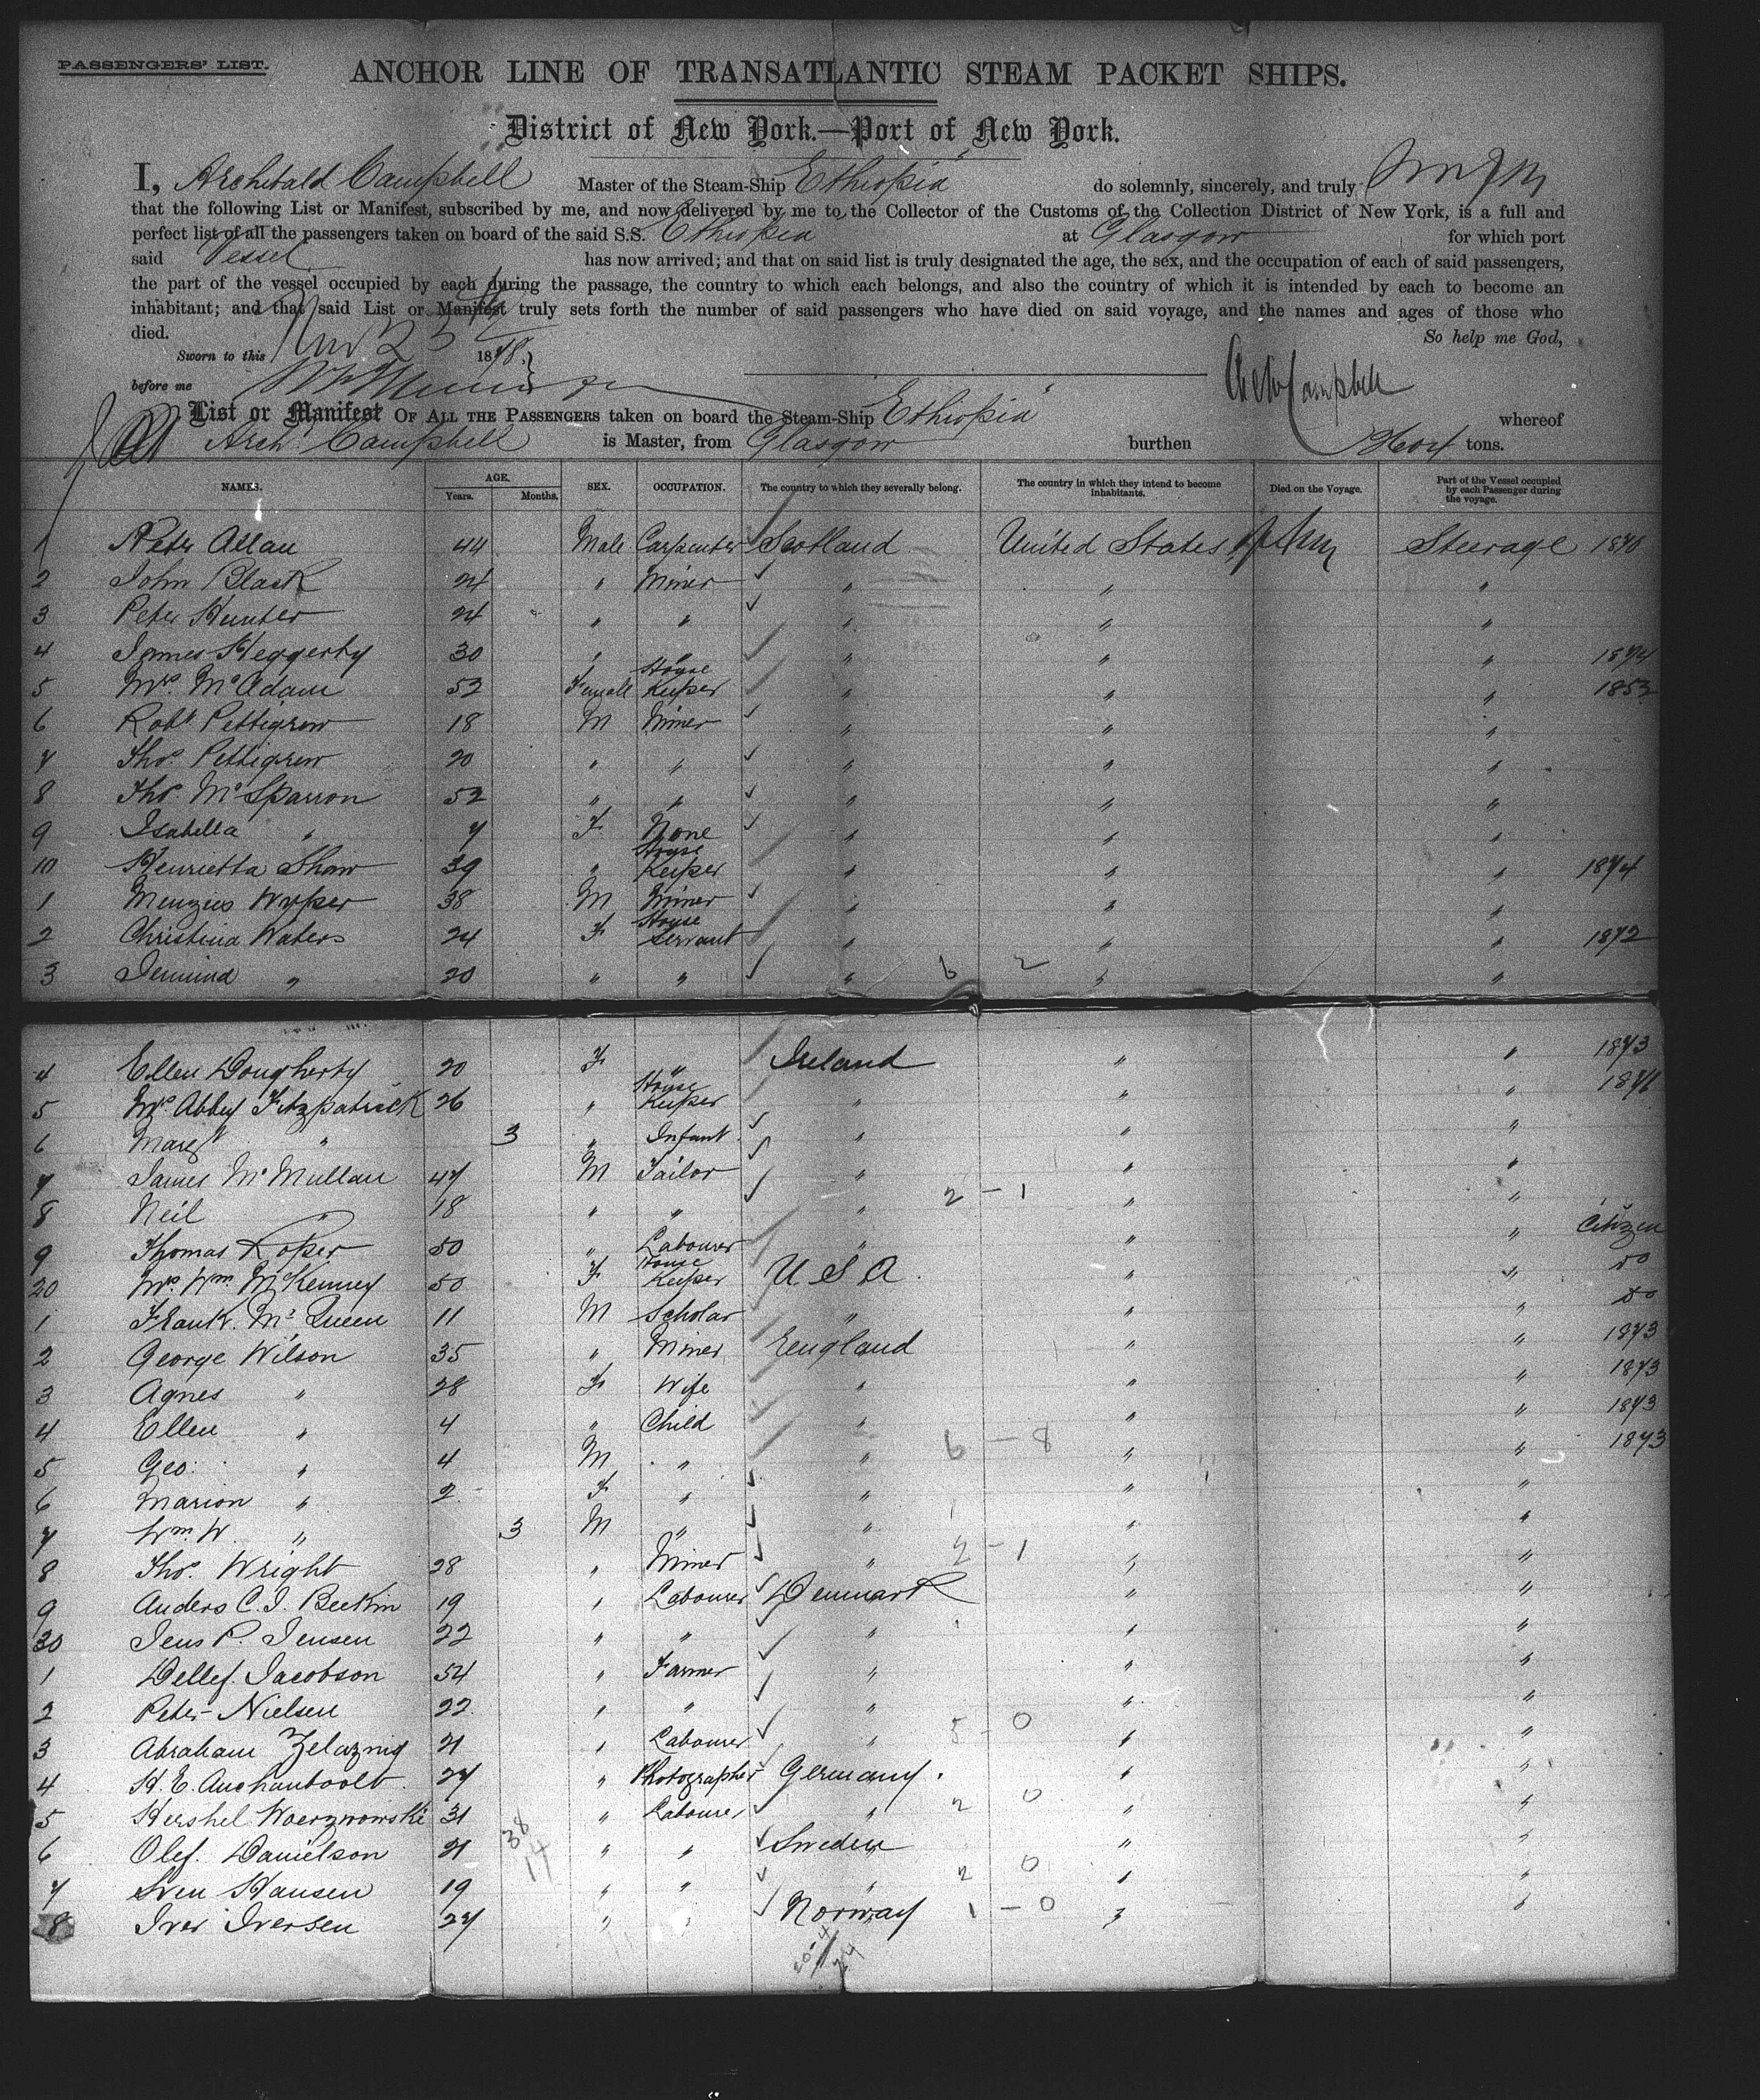 PASSENGERS' LIST.
ANCHOR LINE OF TRANSATLANTIC STEAM PACKET SHIPS.
District of New York.—Port of New York.
I, Archibald Campbell Master of the Steam-Ship Ethiopia do solemnly, sincerely, and truly
that the following List or Manifest, subscribed by me, and now delivered by me to the Collector of the Customs of the Collection District of New York, is a full and
perfect list of all the passengers taken on board of the said S.S. Ethiopia at Glasgow for which port
said Vessel has now arrived; and that on said list is truly designated the age, the sex, and the occupation of each of said passengers,
the part of the vessel occupied by each during the passage, the country to which each belongs, and also the country of which it is intended by each to become an
inhabitant; and that said List or Manifest truly sets forth the number of said passengers who have died on said voyage, and the names and ages of those who
died. So help me God,
Sworn to this 1878.
before me Arch Campbell
List or Manifest OF ALL THE PASSENGERS taken on board the Steam-Ship Ethiopia whereof
Arch. Campbell is Master, from Glasgow burthen tons.
NAMES. AGE. Years. Months. SEX. OCCUPATION. The country to which they severally belong. The country in which they intend to become inhabitants. Died on the Voyage. Part of the Vessel occupied by each Passenger during the voyage.
1 Peter Allan 44 Male Carpenter Scotland United States Steerage 1870
2 John Black 24 " Miner " " "
3 Peter Hunter 24 " " " " "
4 James Heggerty 30 " " " " " 1874
5 Mrs. McAdam 52 Female House Keeper " " " 1853
6 Robt. Pettigrew 18 M Miner " " "
7 Thos. Pettigrew 20 " " " " "
8 Thos. McSparron 52 " " " " "
9 Isabella " 7 F None " " "
10 Henrietta Shaw 39 " House Keeper " " " 1874
1 Menzies Wyper 38 M Miner " " "
2 Christina Waters 24 F House Servant " " " 1872
3 Jemima " 20 " " " 6 2 " "
4 Ellen Dougherty 20 F " Ireland " " 1873
5 Mrs Abbey Fitzpatrick 26 " House Keeper " " " 1871
6 Margt " 3 " Infant " " "
7 James McMullan 47 M Tailor " " "
8 Neil " 18 " " " 2 - 1 " "
9 Thomas Roper 50 " Labourer " " " Citizen
20 Mrs. Wm. McKenney 50 F House Keeper U.S.A. " " do
1 Frank. McQueen 11 M Scholar " " " do
2 George Wilson 35 " Miner England " " 1873
3 Agnes " 28 F Wife " " " 1873
4 Ellen " 4 " Child " " " 1873
5 Geo. " 4 M " " 6 - 8 " " 1873
6 Marion " 2 F " " " "
7 Wm. W. " 3 M " " " "
8 Thos. Wright 28 " Miner " 2 - 1 " "
9 Anders C. J. Beekin 19 " Labourer Denmark " "
30 Jens P. Jensen 22 " " " " "
1 Detlef. Jacobson 54 " Farmer " " "
2 Peter Nielsen 22 " " " " "
3 Abraham Zelaznig 21 " Labourer " 5 - 0 " "
4 H. E. Auchantoolt 27 " Photographer Germany. " "
5 Hershel Woerznowski 31 " Labourer " 2 0 " "
6 Olef. Danielson 21 38 " " Sweden " "
7 Sven Hansen 19 14 " " " 2 0 " "
8 Iver Iversen 27 " " Norway 1 - 0 " "
20-4
24